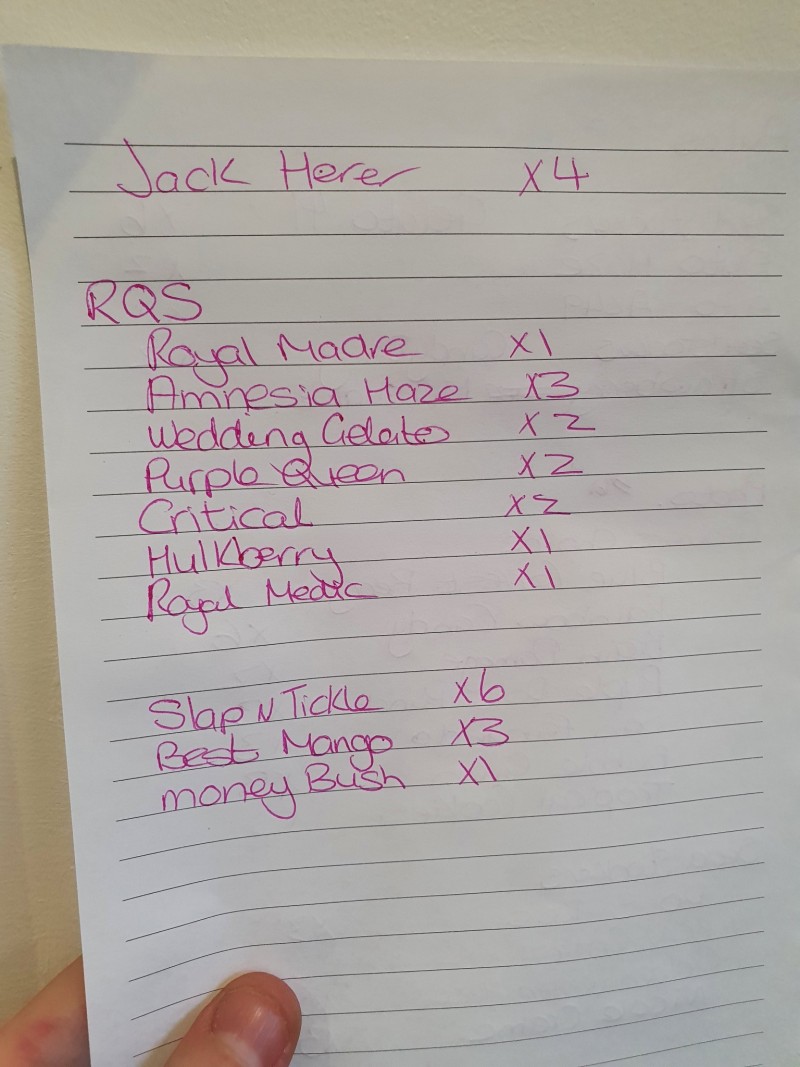 Jack Herer x4
RQS
Royal Madre x1
Amnesia Haze x3
Wedding Gelato x2
Purple Queen x2
Critical x2
Hulkberry x1
Royal Medic x1
Slap N Tickle x6
Best Mango x3
money Bush x1